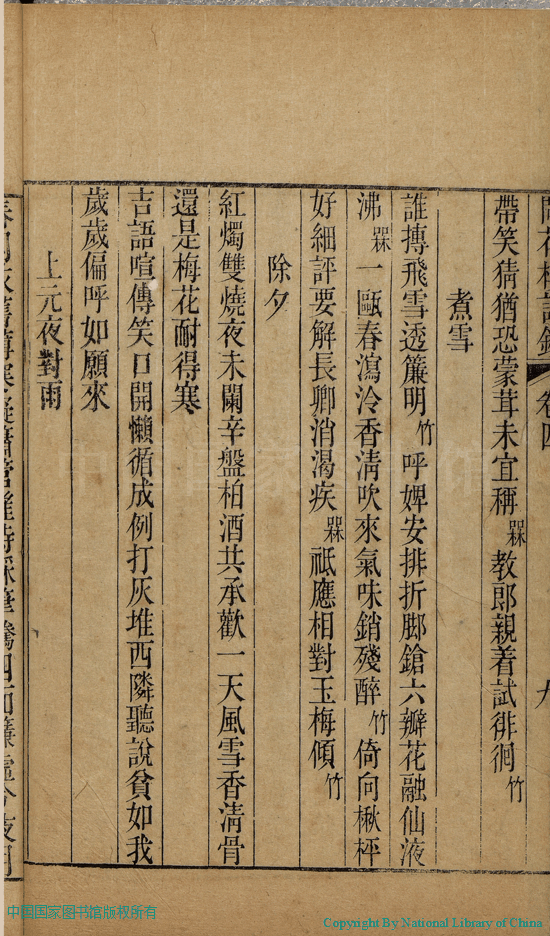 卷四
帶笑猜猶恐蒙茸未宜稱槑教郎親着試徘徊竹
煮雪
誰摶飛雪透簾明竹呼婢安排折脚鎗六瓣花融仙液
沸槑一甌春瀉泠香清吹來氣味銷殘醉竹倚向楸枰
好細評要解長卿消渴疾槑祇應相對玉梅傾竹
除夕
紅燭雙燒夜未闌辛盤柏酒共承歡一天風雪香清骨
還是梅花耐得寒
吉語喧傳笑口開懶循成例打灰堆西隣聽說貧如我
歲歲偏呼如願來
上元夜對雨
中国国家图书馆
中国国家图书馆版权所有
Copyright By National Library of China